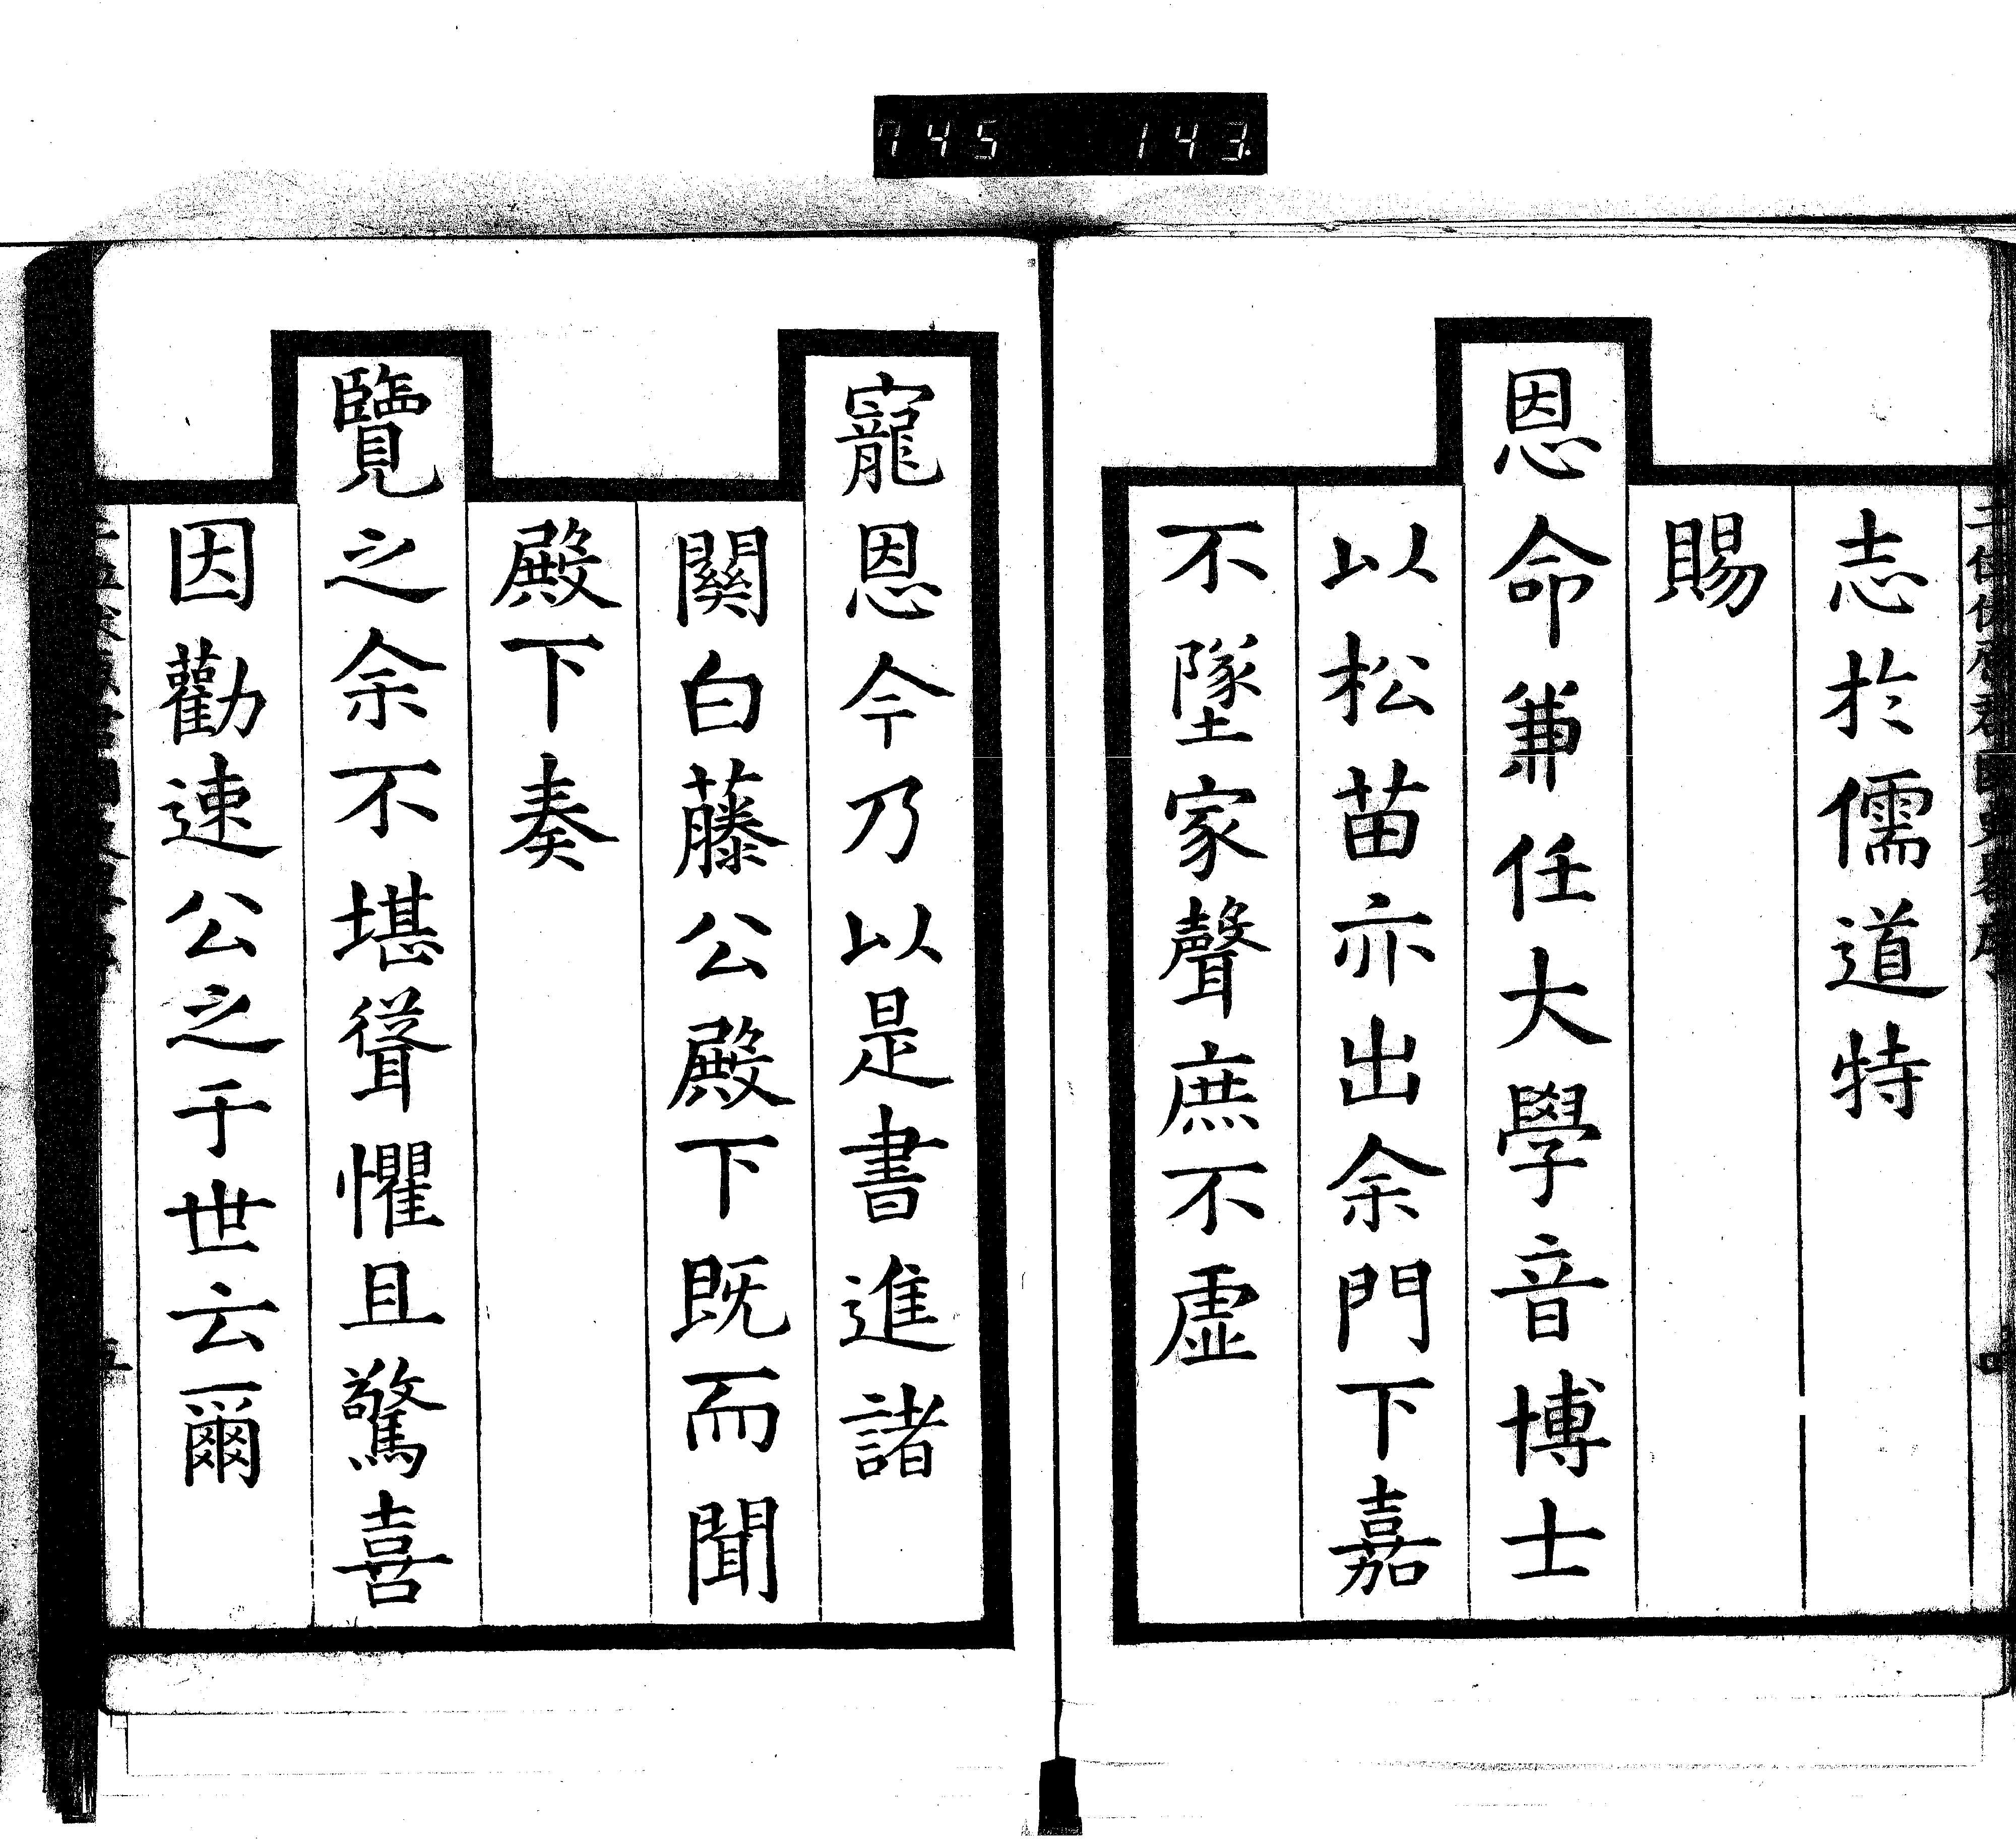 745 143.
志於儒道特
賜
恩命兼任大學音博士
以松苗亦出余門下嘉
不墜家聲庶不虛
寵恩今乃以是書進諸
關白藤公殿下既而聞
殿下奏
覽之余不堪聳懼且驚喜
因勸速公之于世云爾